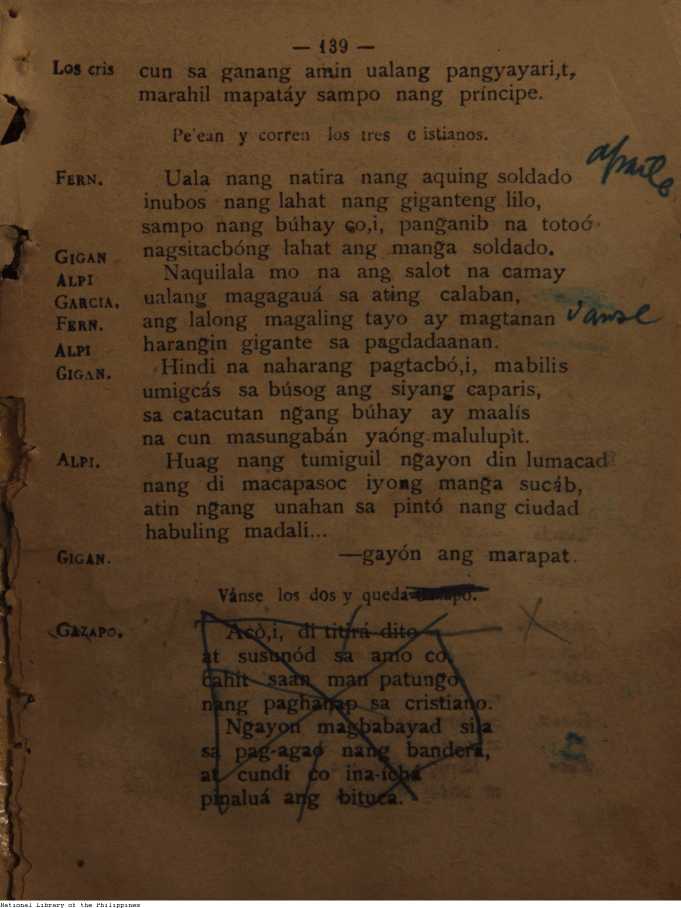 — 139 —
Los cris cun sa ganang amin ualang pangyayari,t,
marahil mapatáy sampo nang príncipe.
Pe'ean y corren los tres c istianos.
aparte
FERN. Uala nang natira nang aquing soldado
inubos nang lahat nang giganteng lilo,
sampo nang búhay co,i, pang̃anib na totoó
nagsitacbóng lahat ang mang̃a soldado.
GIGAN
ALPI Naquilala mo na ang salot na camay
GARCIA. ualang magagauá sa ating calaban,
FERN. ang lalong magaling tayo ay magtanan vanse
ALPI harang̃in gigante sa pagdadaanan.
GIGAN. Hindi na naharang pagtacbó,i, mabilis
umigcás sa búsog ang siyang caparis,
sa catacutan ng̃ang búhay ay maalís
na cun masung̃abán yaóng malulupìt.
ALPI. Huag nang tumiguil ng̃ayon din lumacad
nang di macapasoc iyong mang̃a sucáb,
atin ng̃ang unahan sa pintó nang ciudad
habuling madali...
GIGAN. —gayón ang marapat.
Vánse los dos y queda
GAZAPO. Acò,i, di titirá dito
at susunód sa amo co,
cahit saan man patung̃o
nang paghanap sa cristiano.
Ng̃ayon magbabayad sila
sa pag-agao nang bandera,
at cundi co ina-ichá
pinaluá ang bituca.
National Library of the Philippines